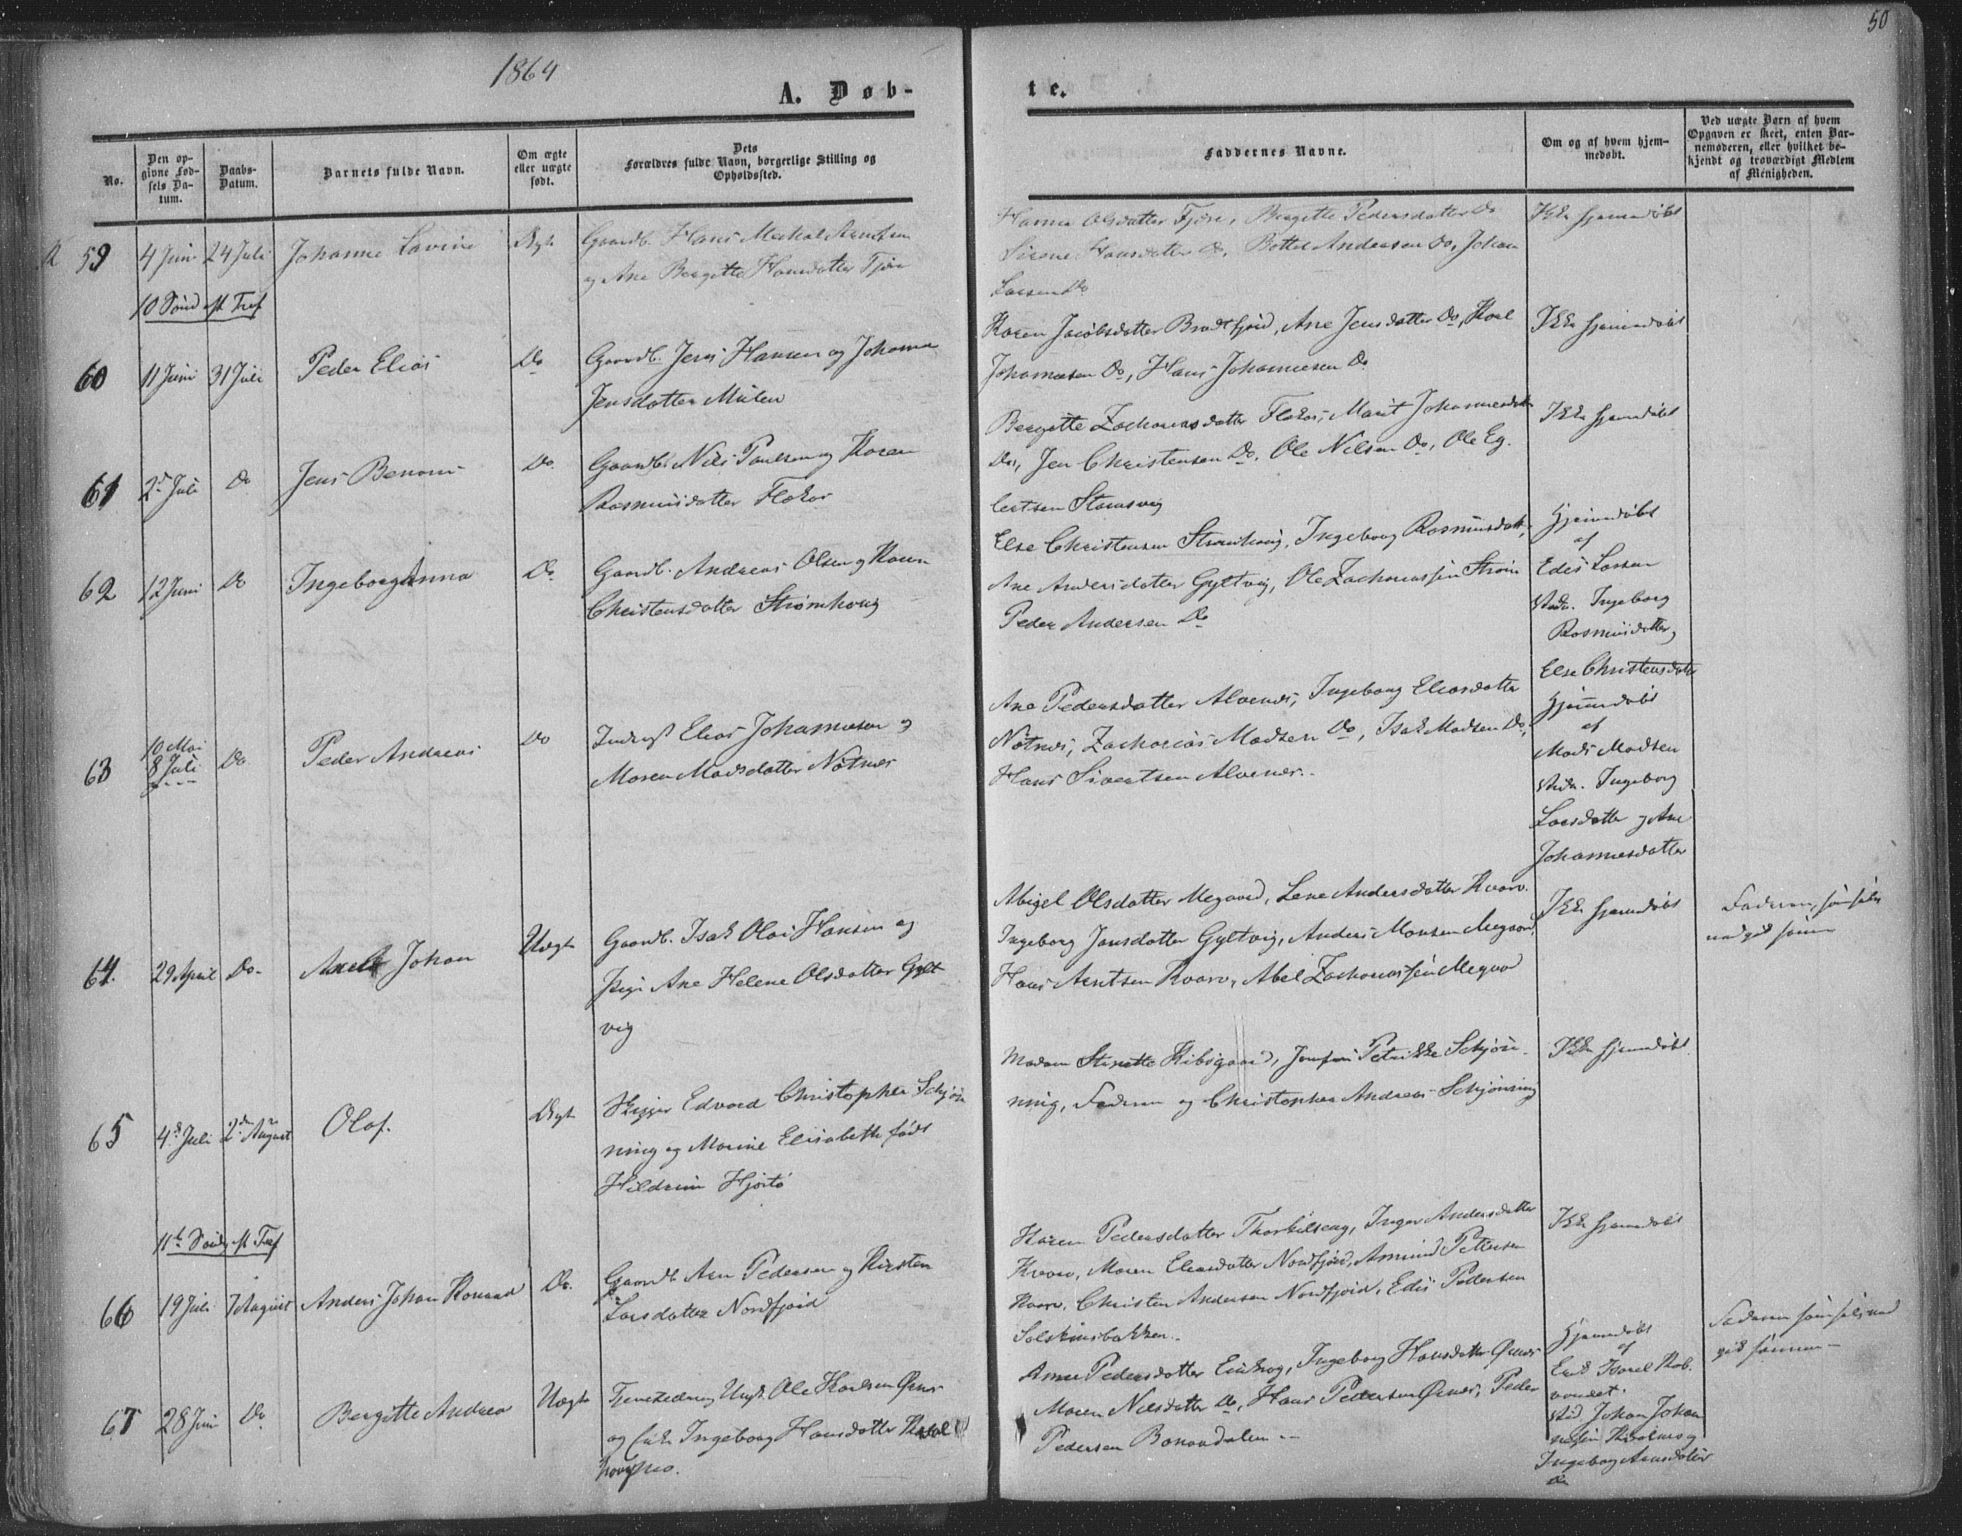 50
1864
A. Døb-
te.
No.
Den op-
givne Fød-
sels Da-
tum.
Daabs-
Datum.
Barnets fulde Navn.
Om ægte
eller uægte
født.
Dets
Forældres fulde Navn, borgerlige Stilling og
Opholdssted.
Faddernes Navne.
Om og af hvem hjem-
medøbt.
Ved uægte Børn af hvem
Opgaven er skeet, enten Bar-
nemoderen, eller hvilket be-
kjendt og troværdigt Medlem
af Menigheden.
59
4 Juni
24 Juli
Johanne Lavine
Ægt
Gaardb. Hans Mechal Arntsen
og Ane Bergitte Hansdatter Fjøre
Hanna Olsdatter Fjøre, Bergitte Pedersdatter Do
Sirene Hansdatter Do, Bottel Andersen Do, Johan
Larsen Do
Ikke hjemmedøbt
10 Sønd eft Tref
60
11 Juni
31 Juli
Peder Elias
Do
Gaardb. Jens Hansen og Johanna
Jensdatter Mulen
Karen Jacobsdatter Bradtfjord, Ane Jensdatter Do, Karl
Johannesen Do, Hans Johannesen Do
Ikke hjemmedøbt
61
2d Juli
Do
Jens Benoni
Do
Gaardb. Nils Paulsen og Karen
Rasmusdatter Flakos
Bergitte Zachariasdatter Flakos, Marit Johannesdatter
Do, Jen Christensen Do, Ole Nilsen Do, Ole Eg-
lertsen Stamsvig
Ikke hjemmedøbt
62
12 Juni
Do
Ingeborg Anna
Do
Gaardb. Andreas Olsen og Karen
Christensdatter Strømhoug
Else Christensen Strømhoug, Ingeborg Rasmusdatt,
Ane Andersdatter Gyltvig, Ole Zachariassen Strøm
Peder Andersen Do
Hjemmedøbt
af
Edis Larsen
Vidn. Ingeborg
Rasmusdatter,
Else Christensdatter
63
10 Mai
8 Juli
Do
Peder Andreas
Do
Inderst Elias Johannesen og
Maren Madsdatter Nøtnes
Ane Pedersdatter Alvenes, Ingeborg Eliasdatter
Nøtnes, Zacharias Madsen Do, Isak Madsen Do,
Hans Sivertsen Alvenes.
Hjemmedøbt
af
Mads Madsen
Vidn. Ingeborg
Larsdatter og Ane
Johannesdatter
64.
29 April
Do.
Axel Johan
Uægt
Gaardb. Isak Olai Hansen og
Pige Ane Helene Olsdatter Gylt-
vig
Abigel Olsdatter Megaard, Lene Andersdatter Kvarv.
Ingeborg Jansdatter Gyltvig, Anders Monsen Megaard,
Hans Arntsen Kvarv, Abel Zachariassen Megaard
Ikke hjemmedøbt
Faderen, som selv
65
4de Juli
2den August
Olaf.
Ægt
Skipper Edvard Christopher Schjøn-
ning og Marine Elisabeth født
Hildrum Hjørtø
Madam Stinette Kibsgaard, Jomfru Petrikke Schjøn-
ning, Faderen og Christopher Andreas Schjønning
Ikke hjemmedøbt
11te Sønd eft Tref
66
19 Juli
7 August
Anders Johan Konrad
Do.
Gaardb. Arn Pedersen og Kirsten
Larsdatter Nordfjord
Karen Pedersdatter Thorkilseng, Inger Andersdatter
Kvarv, Maren Eliasdatter Nordfjord, Amund Pettersen
Kvarv, Christen Andersen Nordfjord, Edis Pedersen
Solskinsbakken.
Ikke hjemmedøbt
67
28 Juni
Do
Bergitte Andrea
Uægte
og Enke Ingeborg Hansdatter
Anne Pedersdatter, Ingeborg Hansdatter Ørnes
Maren Nilsdatter Do, Hans Pedersen Ørnes, Peder
Pedersen
Hjemmedøbt
af
Vid. Johan Johan-
nesen
Ingeborg Arnsdatter
Do
Faderen som selv